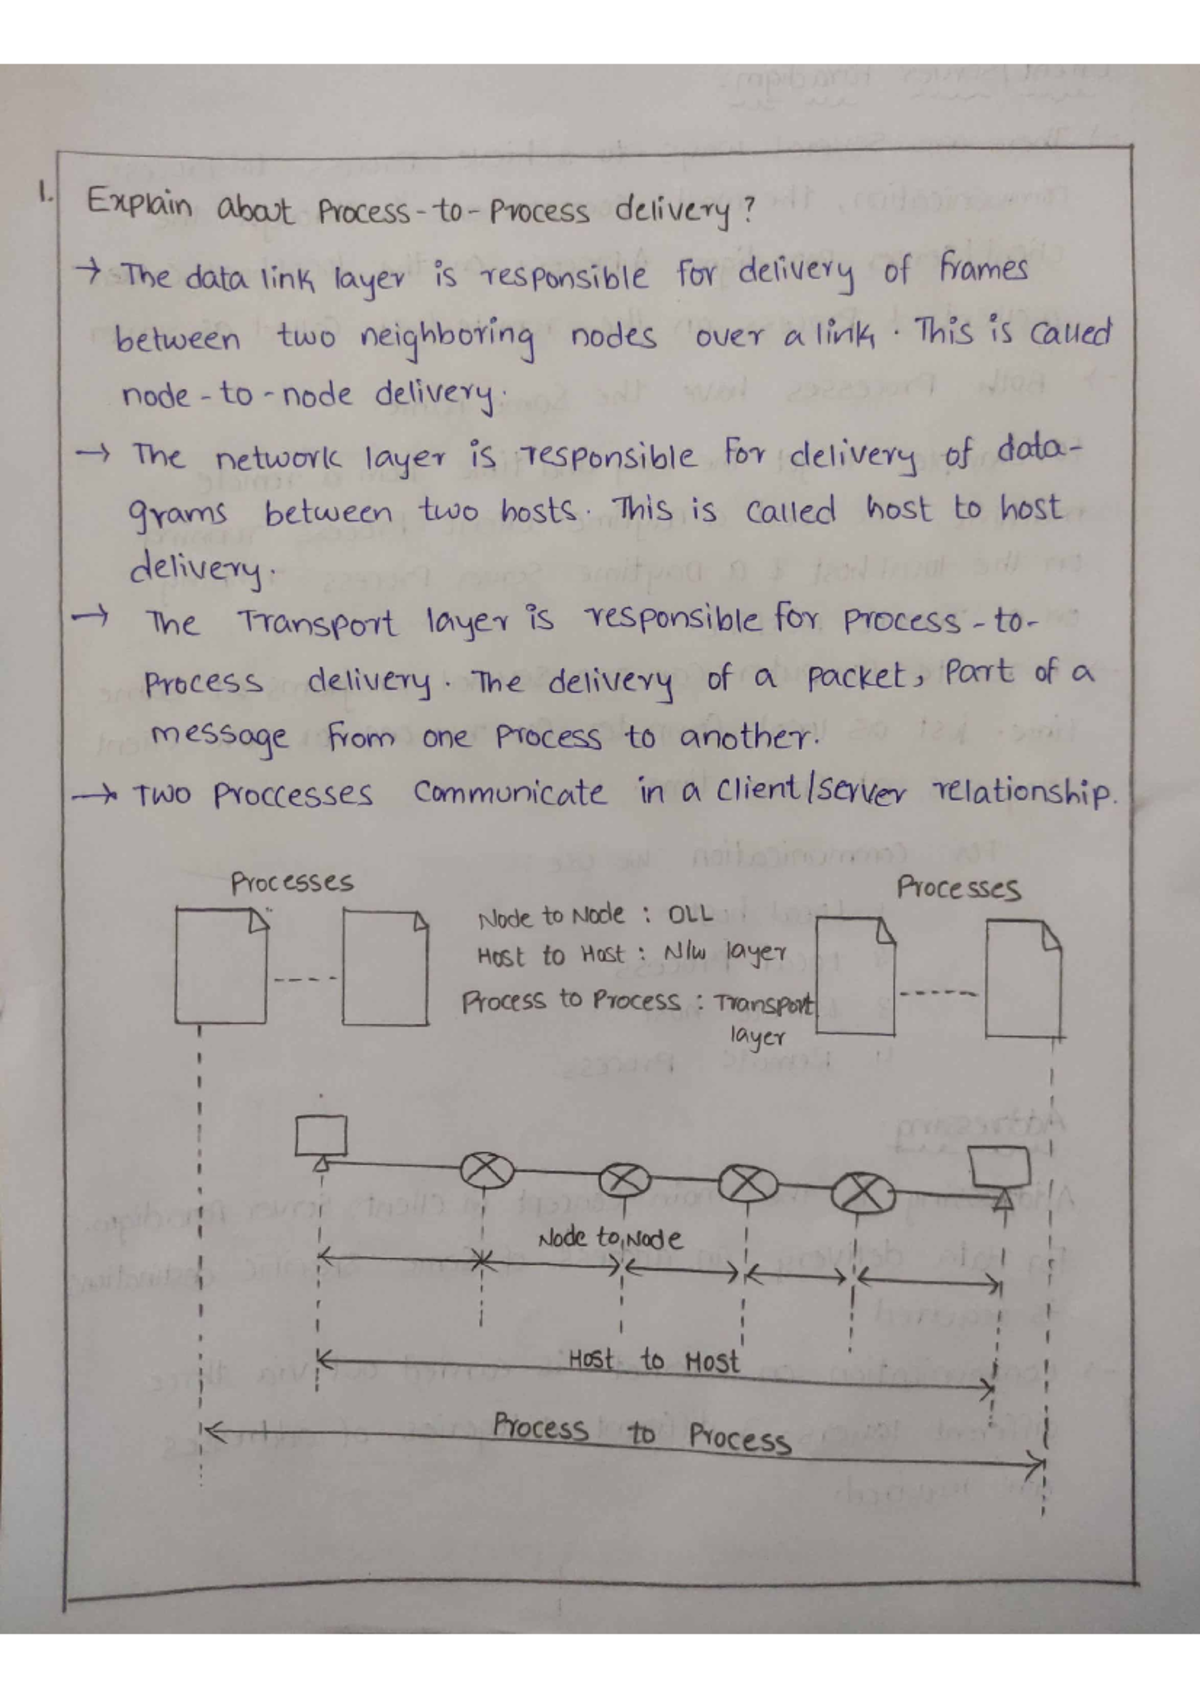 1. Explain about Process-to-Process delivery?
→ The data link layer is responsible for delivery of frames
between two neighboring nodes over a link. This is called
node-to-node delivery.
→ The network layer is responsible for delivery of data-
grams between two hosts. This is called host to host
delivery.
→ The Transport layer is responsible for process-to-
Process delivery. The delivery of a packet, Part of a
message from one Process to another.
→ Two Proccesses Communicate in a Client/Server relationship.
Processes
Processes
Node to Node : OLL
Host to Host : N/w layer
Process to Process : Transport
layer
Node to Node
Host to Host
Process to Process